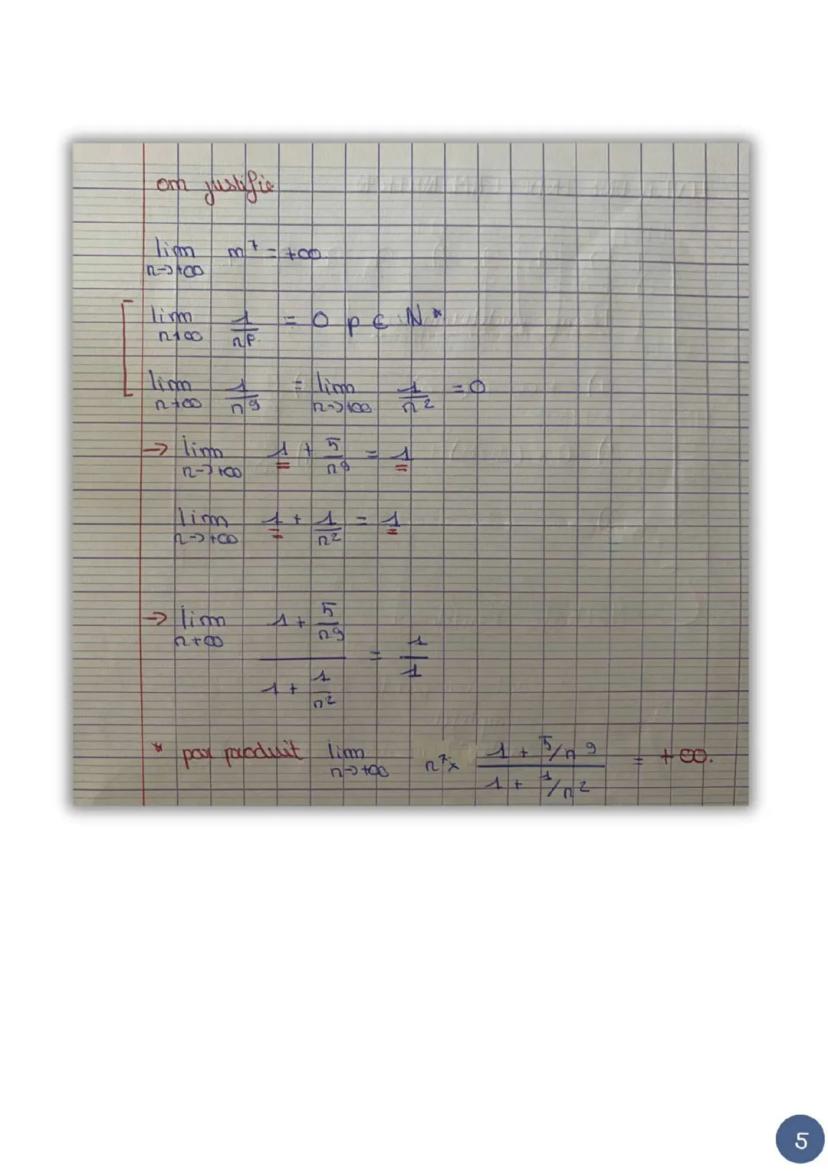 on justifie
lim n→+∞ n⁷ = +∞
lim n+∞ 1/nᵖ = 0 p ∈ ℕ*
lim n+∞ 1/n⁹ = lim n→+∞ 1/n² = 0
→ lim n→+∞ 1 + 5/n⁹ = 1
lim n→+∞ 1 + 1/n² = 1
→ lim n+∞ (1 + 5/n⁹)/(1 + 1/n²) = 1/1
* par produit lim n→+∞ n⁷ × (1 + 5/n⁹)/(1 + 1/n²) = +∞.
5